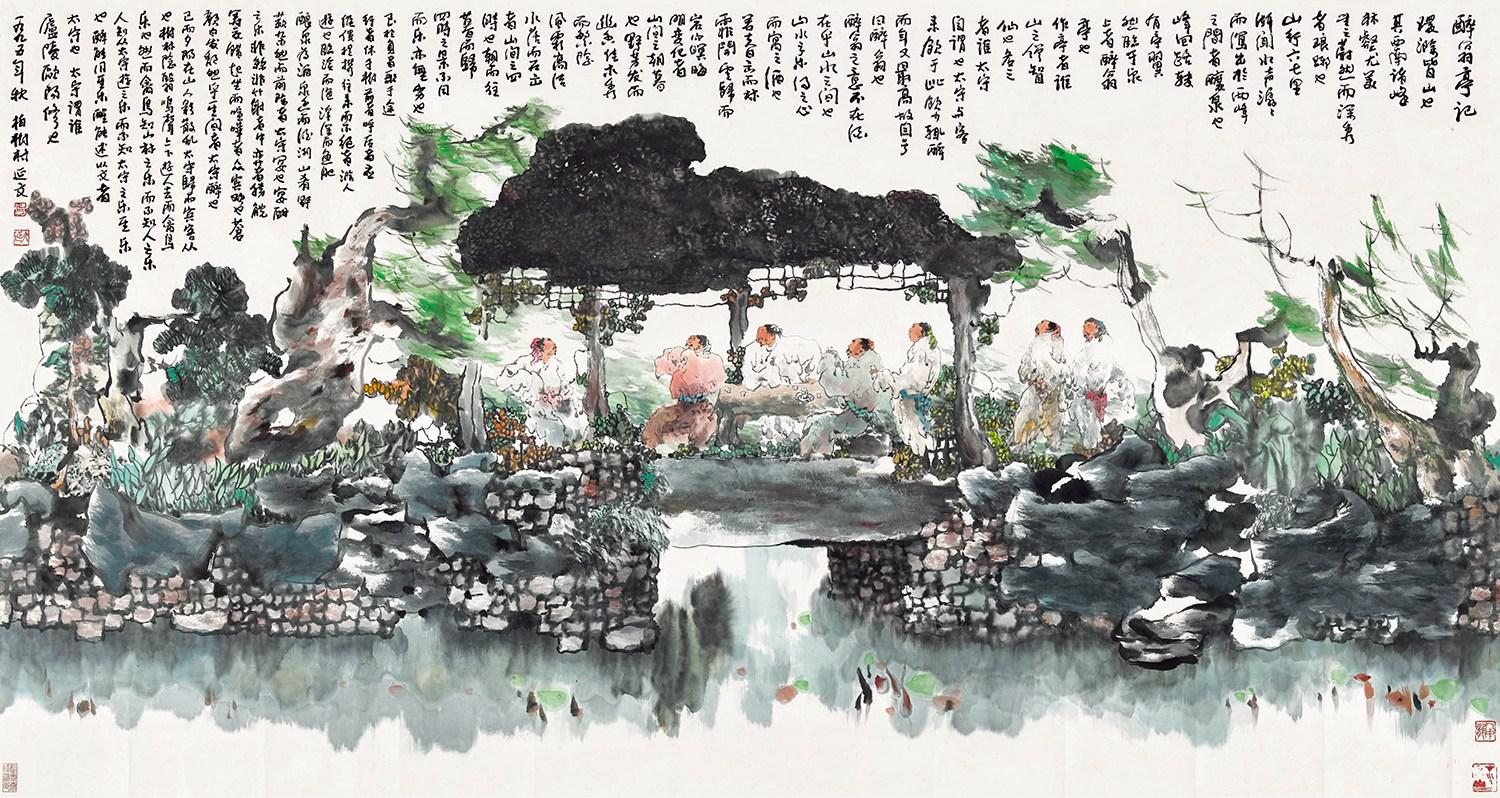 醉翁亭記
環滁皆山也
其西南諸峰
林壑尤美
望之蔚然而深秀
者琅琊也
山行六七里
漸闻水声潺潺
而瀉出於兩峰
之間者釀泉也
峰回路转
有亭翼
然臨于泉
上者醉翁
亭也
作亭者谁
山之僧智
仙也名之
者谁太守
自謂也太守与客
来飲于此飲少輒醉
而年又最高故自号
曰醉翁也
醉翁之意不在酒
在乎山水之间也
山水之乐得之心
而寓之酒也
若夫日出而林
霏開雲歸而
岩穴暝晦
明变化者
山间之朝暮
也野芳发而
幽香佳木秀
而繁陰
風霜高洁
水落而石出
者山间之四
時也朝而往
暮而歸
四時之景不同
而乐亦無穷也
至於負者歌于途
行者休于樹前者呼后者应
伛偻提携往来而不绝者滁人
遊也臨溪而渔溪深而魚肥
釀泉為酒泉香而酒洌山肴野
蔌杂然而前陈者太守宴也宴酣
之乐非絲非竹射者中弈者勝觥
筹交錯起坐而喧嘩者众宾歡也蒼
颜白发颓然乎其间者太守醉也
已而夕阳在山人影散乱太守歸而宾客从
也樹林陰翳鳴聲上下遊人去而禽鳥
乐也然而禽鳥知山林之乐而不知人之乐
人知从太守遊之乐而不知太守之乐其乐
也醉能同其乐醒能述以文者
太守也太守谓谁
廬陵欧阳修也
一九九五年秋 柏樹村 延文